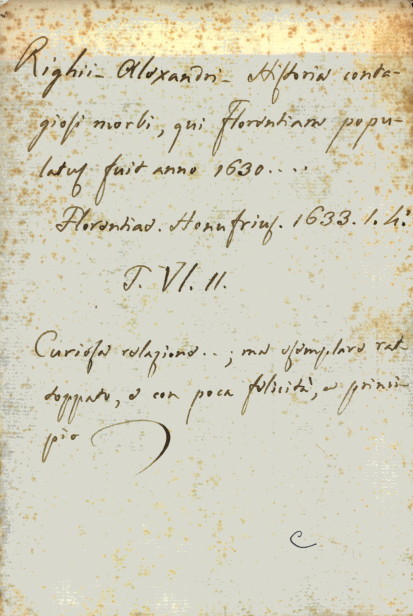 Righii- Alexandri- Historia conta-
giosi morbi, qui Florentiam popu-
latus fuit anno 1630....
Florentiae. Honufrius. 1633. 1. 4.
T. VI. 11.
Curiosa relazione..; ma esemplare rat
toppato, e con poca felicità, a princi-
pio
C